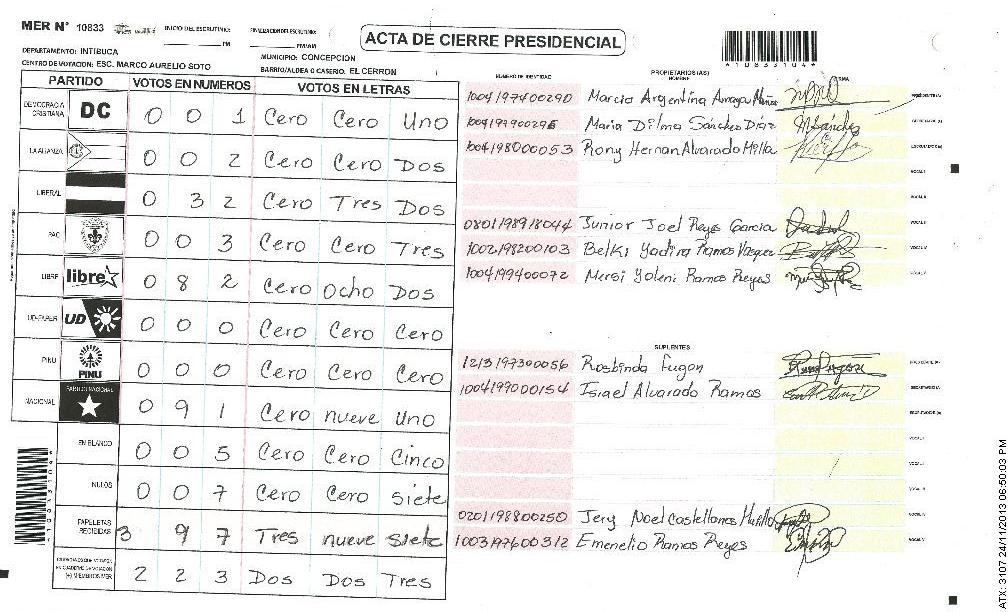 MER N° 10833 INICIO DEL ESCRUTINIO: PM FINALIZACION DEL ESCRUTINIO: PM/AM
ACTA DE CIERRE PRESIDENCIAL
*10833104*
DEPARTAMENTO: INTIBUCA MUNICIPIO: CONCEPCION
CENTRO DE VOTACION: ESC. MARCO AURELIO SOTO BARRIO/ALDEA O CASERIO: EL CERRON
PARTIDO VOTOS EN NUMEROS VOTOS EN LETRAS
DEMOCRACIA CRISTIANA DC 0 0 1 Cero Cero Uno
LA ALIANZA 0 0 2 Cero Cero Dos
LIBERAL 0 3 2 Cero Tres Dos
PAC 0 0 3 Cero Cero Tres
LIBRE libre 0 8 2 Cero Ocho Dos
UD-FAPER UD 0 0 0 Cero Cero Cero
PINU PINU 0 0 0 Cero Cero Cero
NACIONAL PARTIDO NACIONAL 0 9 1 Cero nueve Uno
EN BLANCO 0 0 5 Cero Cero Cinco
NULOS 0 0 7 Cero Cero siete
PAPELETAS RECIBIDAS 3 9 7 Tres nueve siete
CIUDADANOS QUE VOTARON EN CUADERNO DE VOTACION (+) MIEMBROS MER 2 2 3 Dos Dos Tres
NUMERO DE IDENTIDAD PROPIETARIOS(AS) NOMBRE FIRMA
1004197400290 Marcia Argentina Amaya PRESIDENTE(A)
1004199900295 Maria Dilma Sánchez Díaz SECRETARIO(A)
1004198000053 Rony Hernan Alvarado Milla ESCRUTADOR(A)
VOCAL I
VOCAL II
0801198918044 Junior Joel Reyes Garcia VOCAL III
1002198200103 Belki Yadira Ramos Vasquez VOCAL IV
1004199400072 Mersi Yoleni Ramos Reyes VOCAL V
SUPLENTES
1213197300056 Rosbinda Fugon PRESIDENTE(A)
1004199000154 Isiael Alvarado Ramos SECRETARIO(A)
ESCRUTADOR(A)
VOCAL I
VOCAL II
VOCAL III
0201198800250 Jery Noel Castellanos Murillo VOCAL IV
1003197600312 Emenelio Ramos Reyes VOCAL V
ATX: 3107 24/11/2013 06:50:03 PM